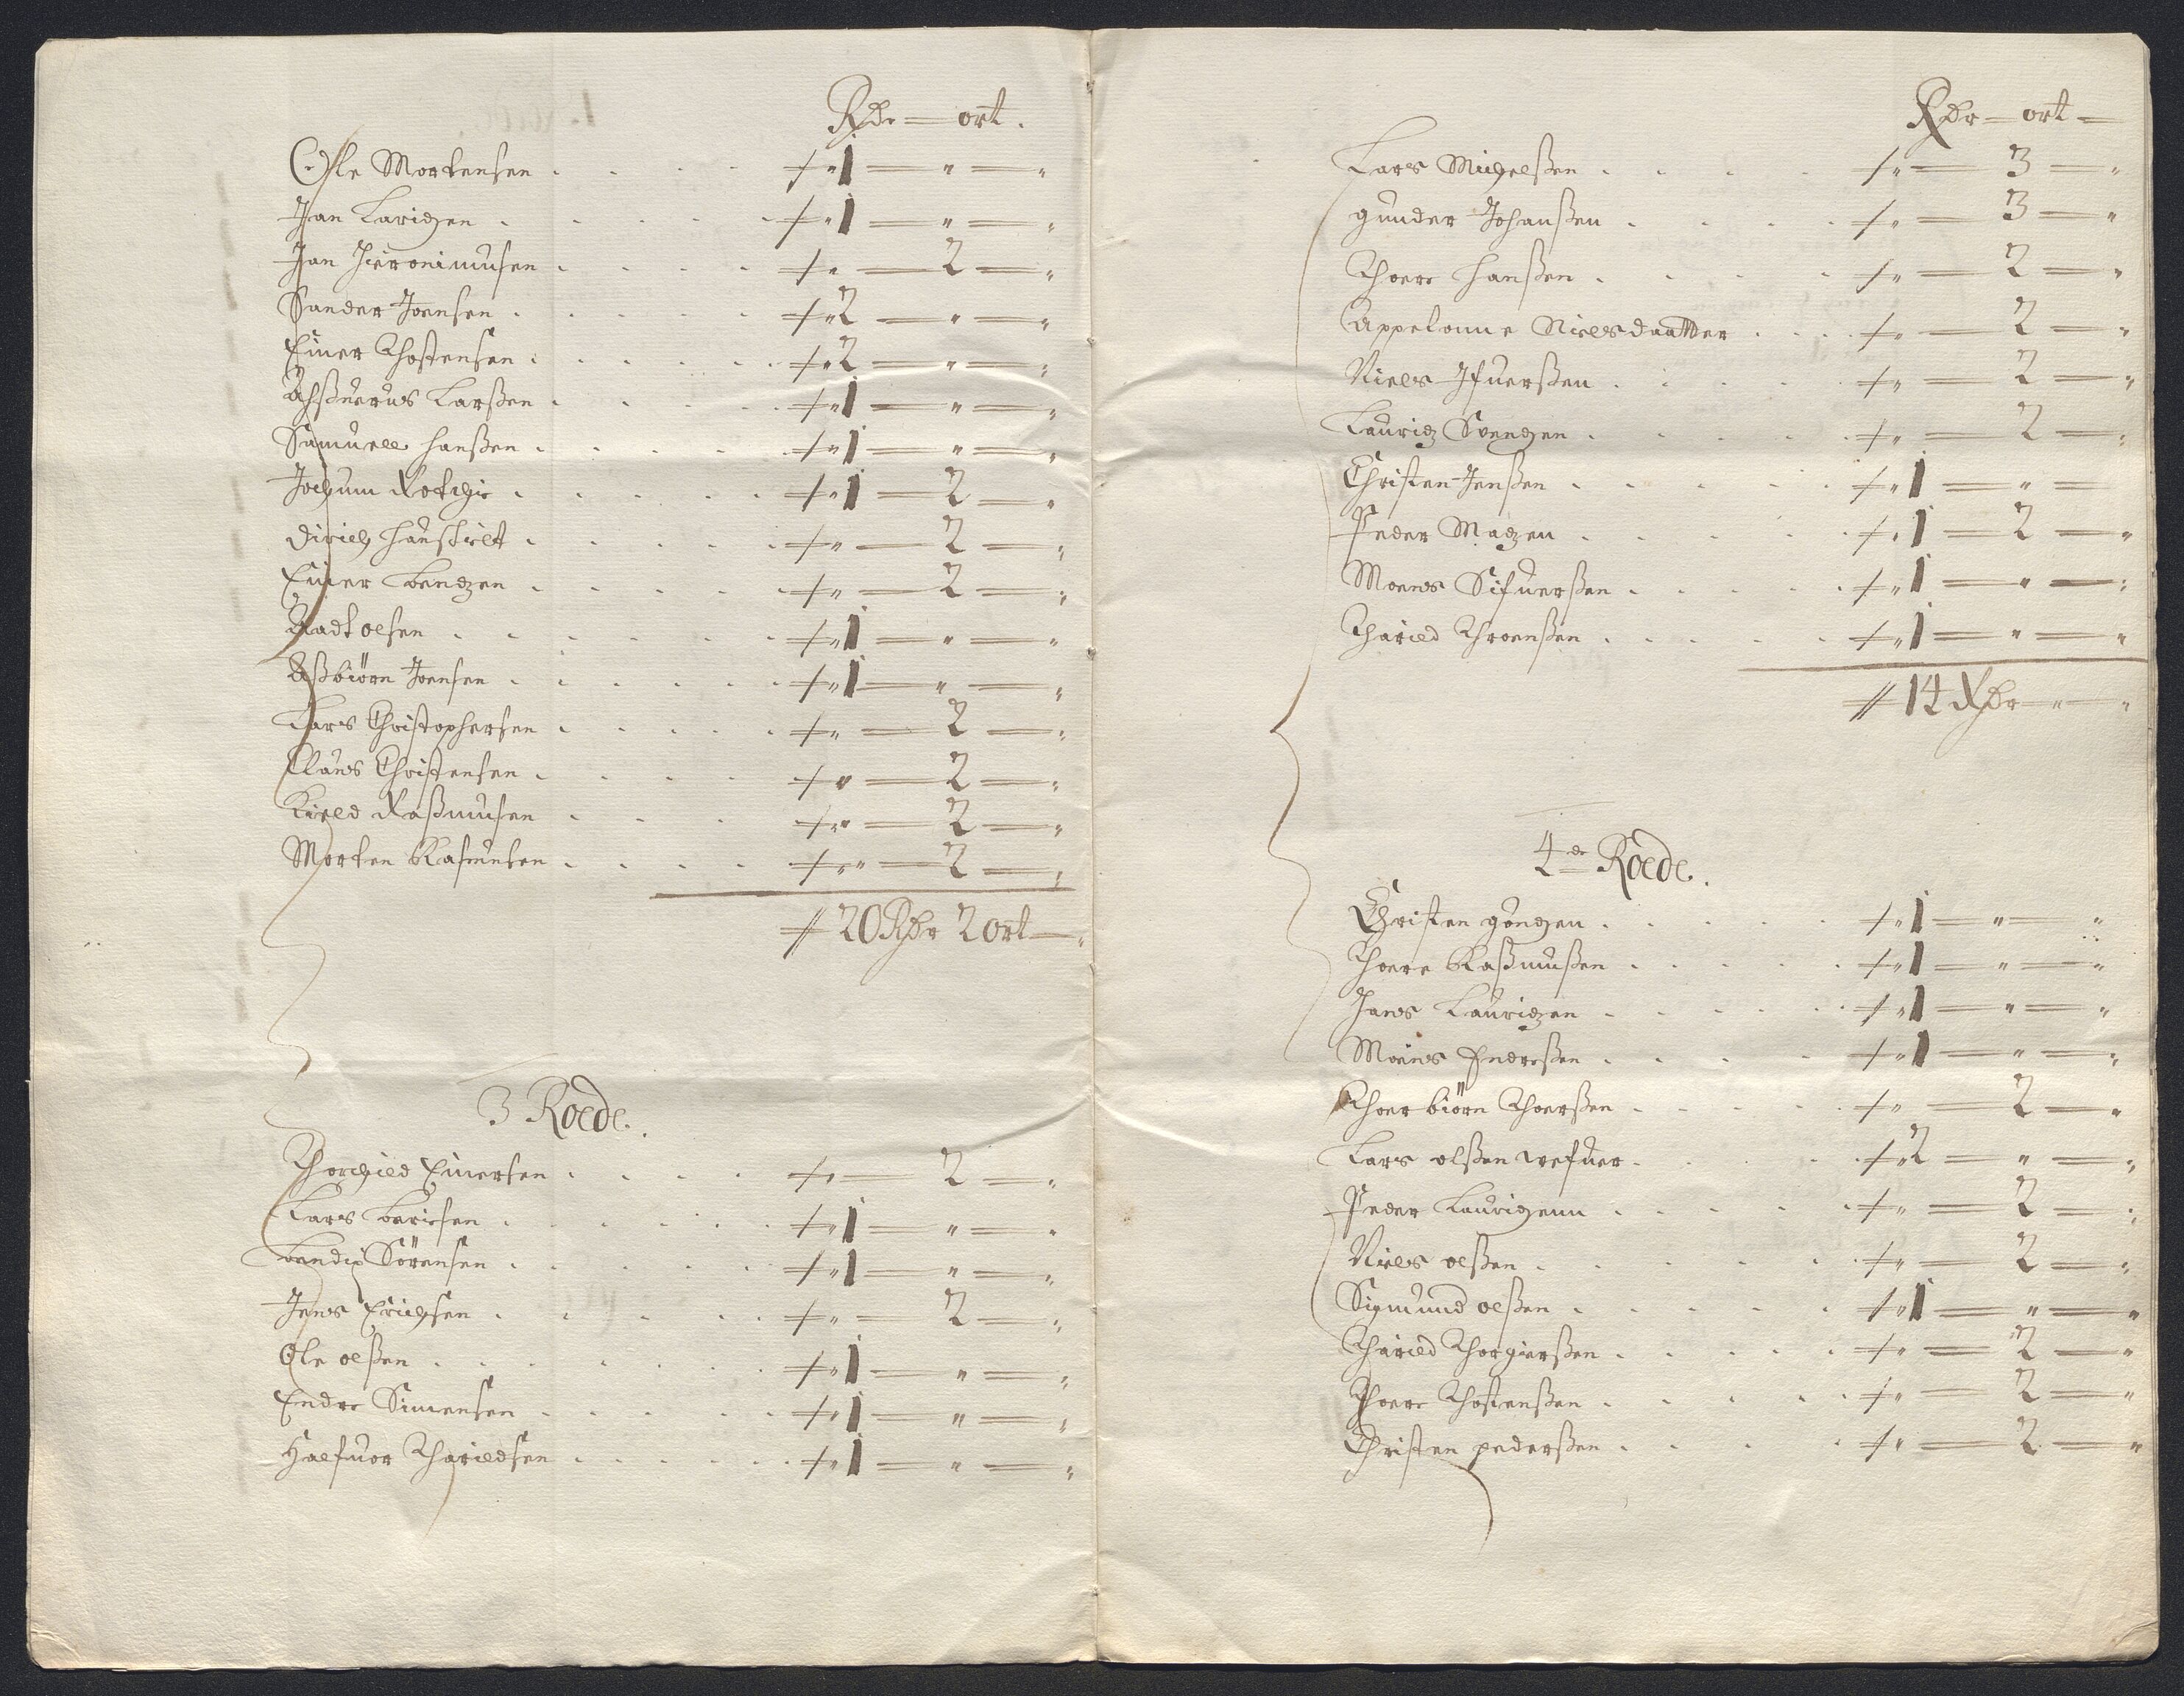 Rdr — ort.
Ole Mortensen . . . . +„ 1 — „ — „
Jan Laridzen . . . . +„ 1 — „ — „
Jan Hieronimusen . . . . +„ — 2 — „
Sander Joensen . . . . +„ 2 — „ — „
Einer Thostensen . . . . +„ 2 — „ — „
Ahsuerus Larßen . . . . +„ 1 — „ — „
Samuell Hanßen . . . . +„ 1 — „ — „
Jochum . . . . +„ 1 — 2 — „
Dirich . . . . +„ — 2 — „
Einer Bendzen . . . . +„ — 2 — „
Aadt olsen . . . . +„ 1 — „ — „
Aßbiörn Joensen . . . . +„ 1 — „ — „
Lars Christophersen . . . . +„ — 2 — „
Claus Christensen . . . . +„ — 2 — „
Kield Raßmusen . . . +„ — 2 — „
Morten Rasmusen . . . . +„ — 2 — „
# 20 Rdr 2 ort — „
3 Roede.
Thorchield Einersen . . . . +„ — 2 — „
Lars . . . . +„ 1 — „ — „
Bendix Sörensen . . . . +„ 1 — „ — „
Jens Erichsen . . . . +„ — 2 — „
Ole olßen . . . . +„ 1 — „ — „
Endre Simensen . . . . +„ 1 — „ — „
Halfuor Tharildsen . . . . +„ 1 — „ — „
Rdr — ort —
Lars Michelßen . . . . +„ — 3 — „
gunder Johanßen . . . . +„ — 3 — „
Thoere Hanßen . . . . +„ — 2 — „
Appelonne Nielsdaatter . . . +„ — 2 — „
Niels Ifuerßen . . . . +„ — 2 — „
Lauridz Svendzen . . . . +„ — 2 — „
Christen Jenßen . . . . +„ 1 — „ —
Peder Madzen . . . . +„ 1 — 2 — „
Moens Sifuerßen . . . . +„ 1 — „ — „
Tharild Throenßen . . . . +„ 1 — „ — „
# 14 Rdr — „ — „
4de Roede.
Christen . . . +„ 1 — „ — „
Thoere Raßmußen . . . . +„ 1 — „ — „
Hans Lauridzen . . . . +„ 1 — „ — „
Moens Endreßen . . . . +„ 1 — „ — „
Thoerbiörn Thoerßen . . . . +„ — 2 — „
Lars olßen wefuer . . . . +„ 2 — „ — „
Peder Lauridzenn . . . . +„ — 2 — „
Niels olßen . . . . +„ — 2 — „
Sigmund olßen . . . . +„ 1 — „ — „
Tharild Thorgierßen . . . . +„ — 2 — „
Thoere Thostenßen . . . . +„ — 2 — „
Christen pederßen . . . . +„ — 2 — „